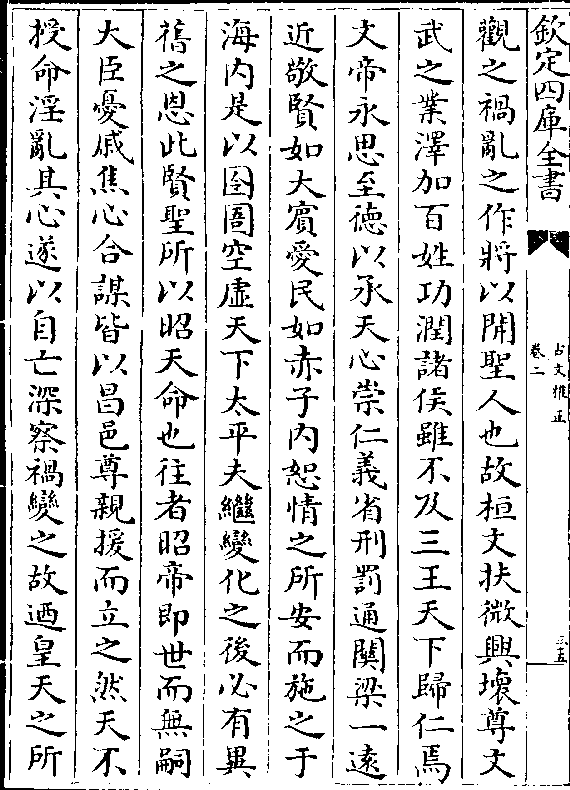 欽定四庫全書
古文雅正
卷二
三五
觀之禍亂之作將以開聖人也故桓文扶微興壞尊文
武之業澤加百姓功潤諸侯雖不及三王天下歸仁焉
文帝永思至德以承天心崇仁義省刑罰通關梁一遠
近敬賢如大賓愛民如赤子內恕情之所安而施之于
海內是以囹圄空虛天下太平夫繼變化之後必有異
舊之恩此賢聖所以昭天命也往者昭帝即世而無嗣
大臣憂戚焦心合謀皆以昌邑尊親援而立之然天不
授命淫亂其心遂以自亡深察禍變之故迺皇天之所